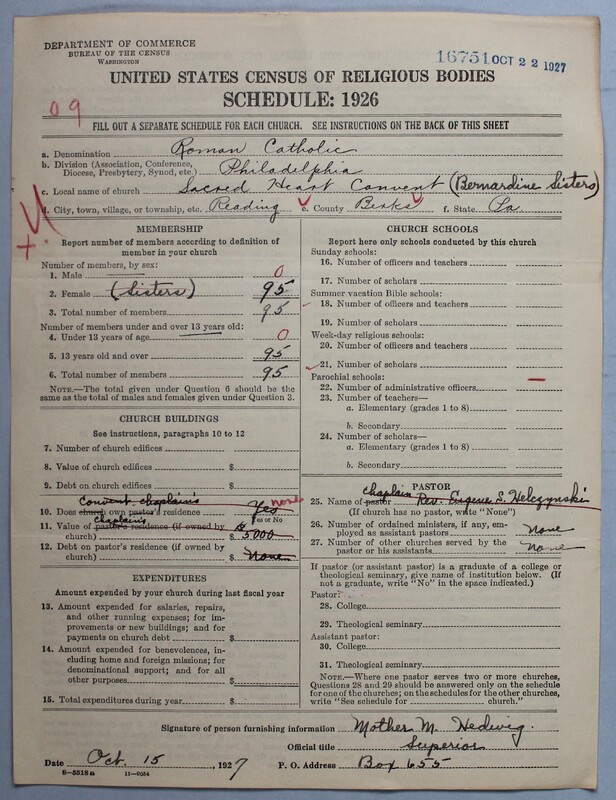 DEPARTMENT OF COMMERCE
BUREAU OF THE CENSUS
WASHINGTON
16751 OCT 22 1927
UNITED STATES CENSUS OF RELIGIOUS BODIES
SCHEDULE: 1926
09
FILL OUT A SEPARATE SCHEDULE FOR EACH CHURCH. SEE INSTRUCTIONS ON THE BACK OF THIS SHEET
a. Denomination Roman Catholic
b. Division (Association, Conference, Diocese, Presbytery, Synod, etc.) Philadelphia
c. Local name of church Sacred Heart Convent (Bernardine Sisters)
d. City, town, village, or township, etc. Reading e. County Berks f. State Pa
MEMBERSHIP
Report number of members according to definition of
member in your church
Number of members, by sex:
1. Male 0
2. Female (Sisters) 95
3. Total number of members 95
Number of members under and over 13 years old:
4. Under 13 years of age 0
5. 13 years old and over 95
6. Total number of members 95
NOTE.—The total given under Question 6 should be the
same as the total of males and females given under Question 3.
CHURCH BUILDINGS
See instructions, paragraphs 10 to 12
7. Number of church edifices
8. Value of church edifices $
9. Debt on church edifices $
convent chaplain's none
10. Does church own pastor's residence? Yes
Yes or No
chaplain's
11. Value of pastor's residence (if owned by
church) $ 5000
12. Debt on pastor's residence (if owned by
church) $ None
EXPENDITURES
Amount expended by your church during last fiscal year
13. Amount expended for salaries, repairs,
and other running expenses; for im-
provements or new buildings; and for
payments on church debt $
14. Amount expended for benevolences, in-
cluding home and foreign missions; for
denominational support; and for all
other purposes $
15. Total expenditures during year $
CHURCH SCHOOLS
Report here only schools conducted by this church
Sunday schools:
16. Number of officers and teachers
17. Number of scholars
Summer vacation Bible schools:
18. Number of officers and teachers
19. Number of scholars
Week-day religious schools:
20. Number of officers and teachers
21. Number of scholars
Parochial schools:
22. Number of administrative officers
23. Number of teachers—
a. Elementary (grades 1 to 8)
b. Secondary
24. Number of scholars—
a. Elementary (grades 1 to 8)
b. Secondary
PASTOR
chaplain
25. Name of pastor Rev. Eugene S. Helczynski
(If church has no pastor, write "None")
26. Number of ordained ministers, if any, em-
ployed as assistant pastors None
27. Number of other churches served by the
pastor or his assistants None
If pastor (or assistant pastor) is a graduate of a college or
theological seminary, give name of institution below. (If
not a graduate, write "No" in the space indicated.)
Pastor:
28. College
29. Theological seminary
Assistant pastor:
30. College
31. Theological seminary
NOTE.—Where one pastor serves two or more churches,
Questions 28 and 29 should be answered only on the schedule
for one of the churches; on the schedules for the other churches,
write "See schedule for church."
Signature of person furnishing information Mother M. Hedwig.
Official title Superior
Date Oct. 15, 1927 P. O. Address Box 655
8-5518a 11-9054